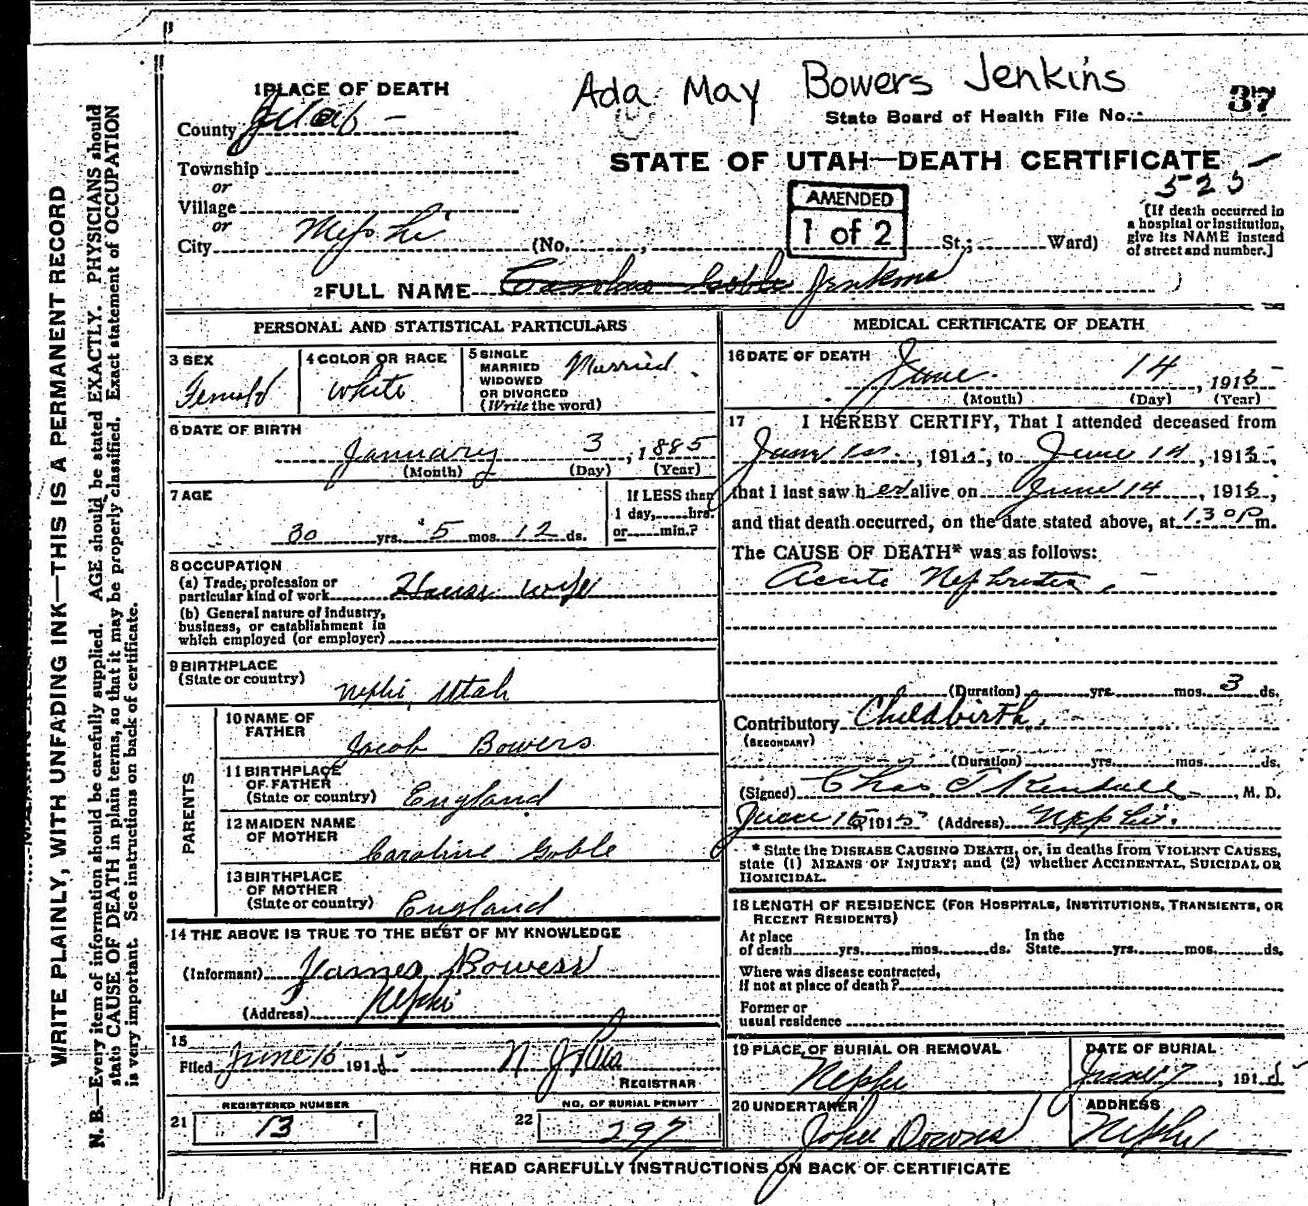 Ada May Bowers Jenkins
37
1 PLACE OF DEATH
State Board of Health File No.
County
STATE OF UTAH—DEATH CERTIFICATE
525
Township
or
Village
or
City Nephi (No. , St.; Ward)
AMENDED
1 of 2
[If death occurred in
a hospital or institution,
give its NAME instead
of street and number.]
2 FULL NAME Caroline Goble Jenkins
PERSONAL AND STATISTICAL PARTICULARS
3 SEX
Female
4 COLOR OR RACE
White
5 SINGLE
MARRIED
WIDOWED
OR DIVORCED
(Write the word)
Married
6 DATE OF BIRTH
January 3, 1885
(Month) (Day) (Year)
7 AGE
30 yrs. 5 mos. 12 ds.
If LESS than
1 day, hrs.
or min.?
8 OCCUPATION
(a) Trade, profession or
particular kind of work House wife
(b) General nature of industry,
business, or establishment in
which employed (or employer)
9 BIRTHPLACE
(State or country)
Nephi, Utah
PARENTS
10 NAME OF
FATHER
Jacob Bowers
11 BIRTHPLACE
OF FATHER
(State or country) England
12 MAIDEN NAME
OF MOTHER
Caroline Goble
13 BIRTHPLACE
OF MOTHER
(State or country) England
14 THE ABOVE IS TRUE TO THE BEST OF MY KNOWLEDGE
(Informant) James Bowers
(Address) Nephi
15
Filed June 16 191
REGISTRAR
REGISTERED NUMBER
21 13
NO. OF BURIAL PERMIT
22 297
MEDICAL CERTIFICATE OF DEATH
16 DATE OF DEATH
June 14, 1915
(Month) (Day) (Year)
17 I HEREBY CERTIFY, That I attended deceased from
June 1st, 1915, to June 14, 1915,
that I last saw her alive on June 14, 1915,
and that death occurred, on the date stated above, at 1.30 P m.
The CAUSE OF DEATH* was as follows:
Acute Nephritis
(Duration) yrs. mos. 3 ds.
Contributory Childbirth
(SECONDARY)
(Duration) yrs. mos. ds.
(Signed) Chas T. Kendall, M. D.
June 15 1915 (Address) Nephi.
* State the DISEASE CAUSING DEATH, or, in deaths from VIOLENT CAUSES,
state (1) MEANS OF INJURY; and (2) whether ACCIDENTAL, SUICIDAL OR
HOMICIDAL.
18 LENGTH OF RESIDENCE (FOR HOSPITALS, INSTITUTIONS, TRANSIENTS, OR
RECENT RESIDENTS)
At place
of death yrs. mos. ds.
In the
State yrs. mos. ds.
Where was disease contracted,
if not at place of death?
Former or
usual residence
19 PLACE OF BURIAL OR REMOVAL
Nephi
DATE OF BURIAL
June 17, 191
20 UNDERTAKER
John Downs
ADDRESS
Nephi
READ CAREFULLY INSTRUCTIONS ON BACK OF CERTIFICATE
WRITE PLAINLY, WITH UNFADING INK—THIS IS A PERMANENT RECORD
N. B.—Every item of information should be carefully supplied. AGE should be stated EXACTLY. PHYSICIANS should
state CAUSE OF DEATH in plain terms, so that it may be properly classified. Exact statement of OCCUPATION
is very important. See instructions on back of certificate.